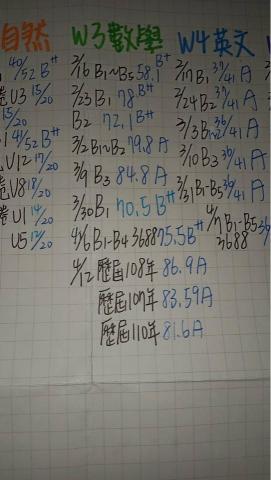 自然
40/52 B++
卷U3 15/20
15/20
41/52 B++
U12 17/20
卷U8 18/20
卷U1 14/20
U5 12/20
W3數學
2/16 B1~B5 58.1 B+
2/23 B1 78 B++
B2 72.1 B+
3/2 B1~B2 79.8 A
3/9 B3 84.8 A
3/30 B1 70.5 B++
4/6 B1-B4 3688 75.5 B++
4/12 歷屆108年 86.9 A
歷屆109年 83.59 A
歷屆110年 81.6 A
W4英文
2/17 B1 37/41 A
2/24 B2 37/41 A
3/3 B1~2 36/41 A
3/10 B3 36/41 A
3/31 B1-B5 36/41 A
4/7 B1-B5 36
3688
W